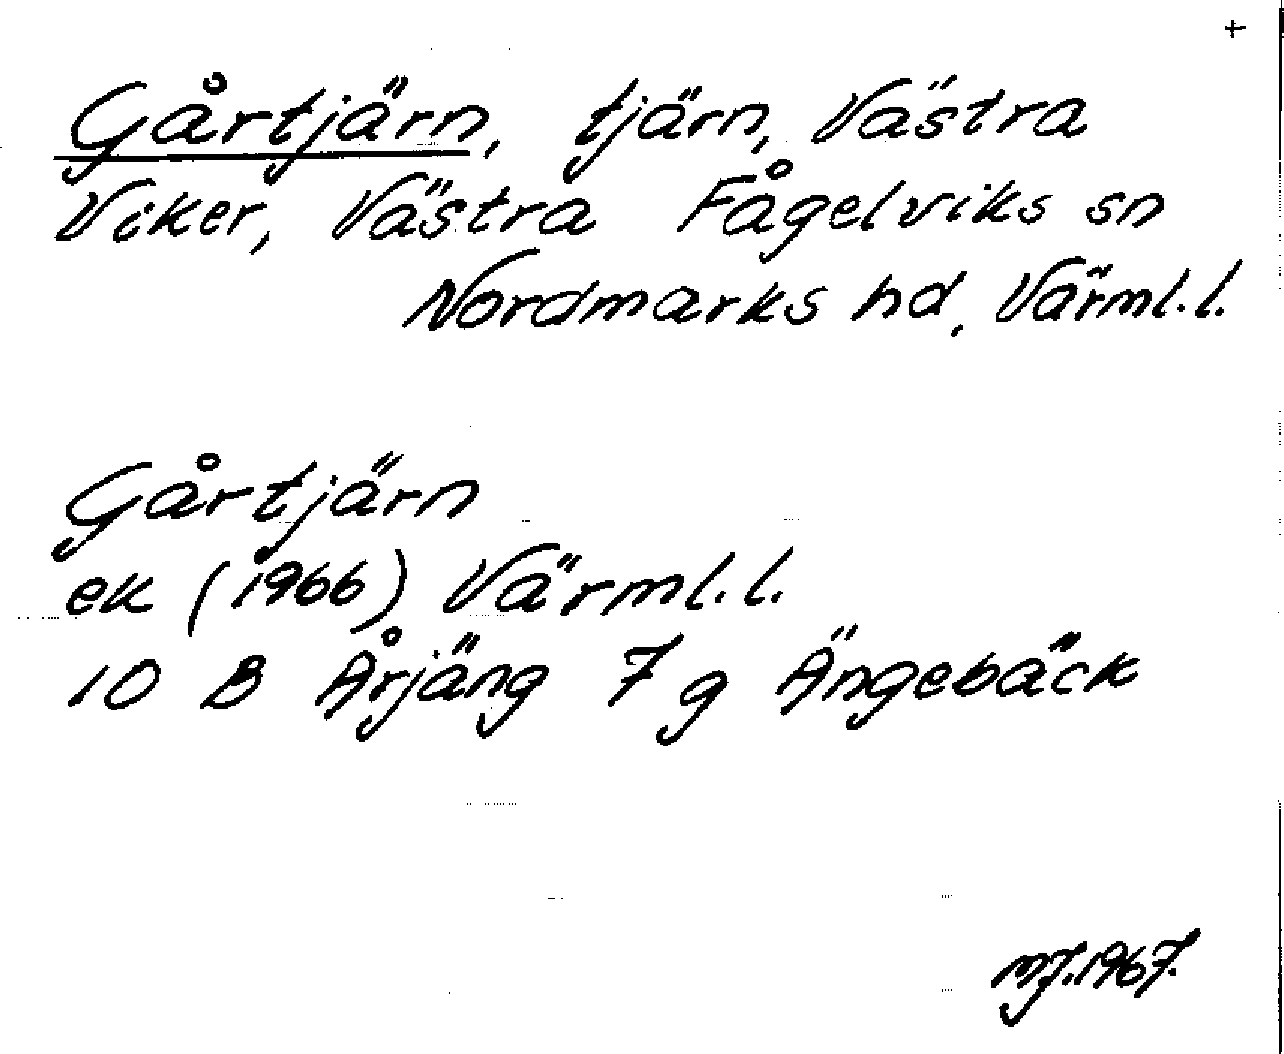 +
Gårtjärn, tjärn, Västra
Viker, Västra Fågelviks sn
Nordmarks hd, Värml.l.
Gårtjärn
ek (1966) Värml.l.
10 B Årjäng 7 g Ängebäck
MJ.1967.